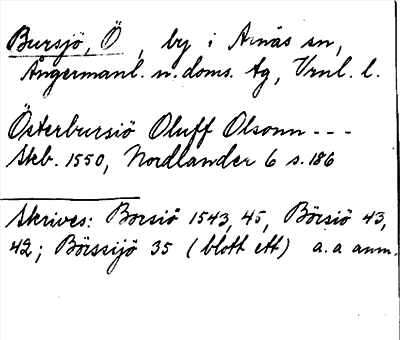 Bursjö, Ö, by i Arnäs sn,
Ångermanl. n. doms. tg, Vrnl. l.
Österbursiö Oluff Olsonn - - -
Skb. 1550, Nordlander 6 s. 186
Skrives: Borsiö 1543, 45, Börsiö 43,
42; Börssijö 35 (blott ett) a. a anm.